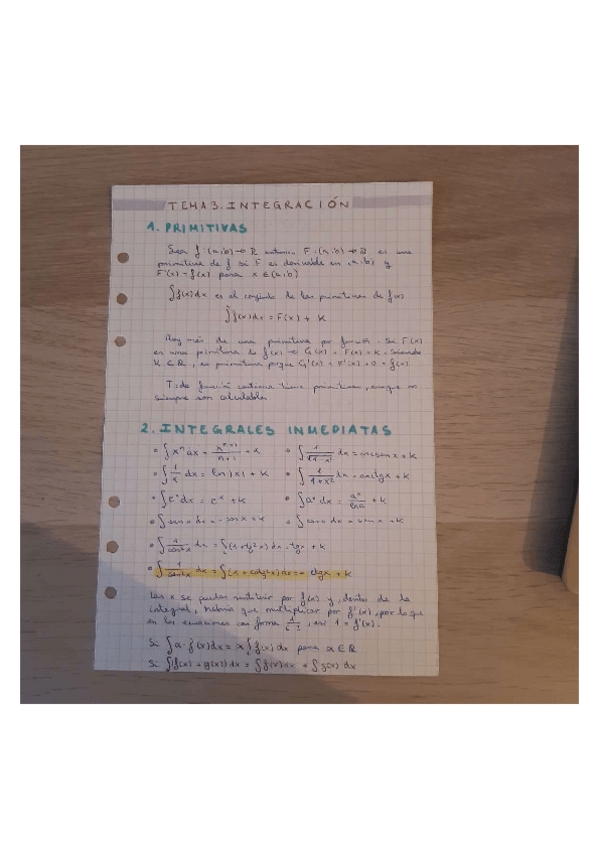 TEMA 3. INTEGRACIÓN
1. PRIMITIVAS
Sea f: (a,b) → R entonces F: (a,b) → R es una
primitiva de f si F es derivable en (a,b) y
F'(x) = f(x) para x ∈ (a,b)
∫f(x)dx es el conjunto de las primitivas de f(x)
∫f(x)dx = F(x) + K
Hay más de una primitiva por función. Si F(x)
es una primitiva de f(x) → G(x) = F(x) + K siendo
K ∈ R, es primitiva porque G'(x) = F'(x) + 0 = f(x)
Toda función continua tiene primitivas, aunque no
siempre son calculables
2. INTEGRALES INMEDIATAS
• ∫xⁿ dx = xⁿ⁺¹/n+1 + K
• ∫1/√1-x² dx = arcsen x + K
• ∫1/x dx = ln|x| + K
• ∫1/1+x² dx = arctg x + K
• ∫eˣ dx = eˣ + K
• ∫aˣ dx = aˣ/ln a + K
• ∫sen x dx = -cos x + K
• ∫cos x dx = sen x + K
• ∫1/cos²x dx = ∫(1+tg²x) dx = tg x + K
• ∫1/sen²x dx = ∫(1+cotg²x) dx = - ctg x + K
Las x se pueden sustituir por f(x) y, dentro de la
integral, habría que multiplicar por f'(x), por lo que
en las ecuaciones con forma 1/, así 1 = f'(x).
Si ∫α·f(x)dx = α∫f(x)dx para α ∈ R
Si ∫(f(x) + g(x))dx = ∫f(x)dx + ∫g(x) dx